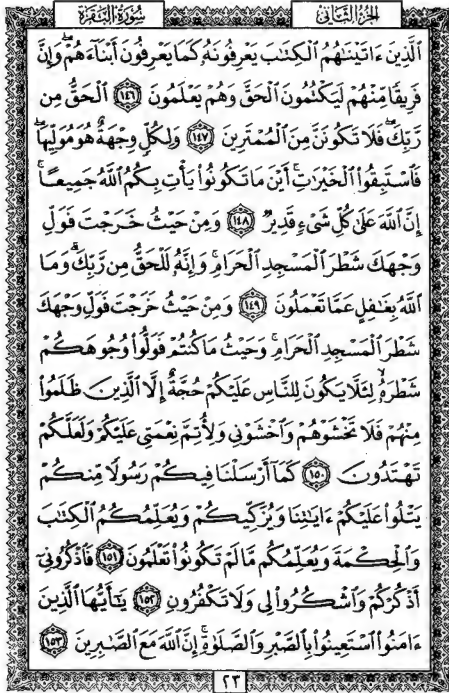 الجزء الثاني
سورة البقرة
ٱلَّذِينَ ءَاتَيْنَٰهُمُ ٱلْكِتَٰبَ يَعْرِفُونَهُۥ كَمَا يَعْرِفُونَ أَبْنَآءَهُمْ ۖ وَإِنَّ
فَرِيقًا مِّنْهُمْ لَيَكْتُمُونَ ٱلْحَقَّ وَهُمْ يَعْلَمُونَ ١٤٦ ٱلْحَقُّ مِن
رَّبِّكَ ۖ فَلَا تَكُونَنَّ مِنَ ٱلْمُمْتَرِينَ ١٤٧ وَلِكُلٍّ وِجْهَةٌ هُوَ مُوَلِّيهَا ۖ
فَٱسْتَبِقُوا۟ ٱلْخَيْرَٰتِ ۚ أَيْنَ مَا تَكُونُوا۟ يَأْتِ بِكُمُ ٱللَّهُ جَمِيعًا ۚ
إِنَّ ٱللَّهَ عَلَىٰ كُلِّ شَىْءٍ قَدِيرٌ ١٤٨ وَمِنْ حَيْثُ خَرَجْتَ فَوَلِّ
وَجْهَكَ شَطْرَ ٱلْمَسْجِدِ ٱلْحَرَامِ ۖ وَإِنَّهُۥ لَلْحَقُّ مِن رَّبِّكَ ۗ وَمَا
ٱللَّهُ بِغَٰفِلٍ عَمَّا تَعْمَلُونَ ١٤٩ وَمِنْ حَيْثُ خَرَجْتَ فَوَلِّ وَجْهَكَ
شَطْرَ ٱلْمَسْجِدِ ٱلْحَرَامِ ۚ وَحَيْثُ مَا كُنتُمْ فَوَلُّوا۟ وُجُوهَكُمْ
شَطْرَهُۥ لِئَلَّا يَكُونَ لِلنَّاسِ عَلَيْكُمْ حُجَّةٌ إِلَّا ٱلَّذِينَ ظَلَمُوا۟
مِنْهُمْ فَلَا تَخْشَوْهُمْ وَٱخْشَوْنِى وَلِأُتِمَّ نِعْمَتِى عَلَيْكُمْ وَلَعَلَّكُمْ
تَهْتَدُونَ ١٥٠ كَمَآ أَرْسَلْنَا فِيكُمْ رَسُولًا مِّنكُمْ
يَتْلُوا۟ عَلَيْكُمْ ءَايَٰتِنَا وَيُزَكِّيكُمْ وَيُعَلِّمُكُمُ ٱلْكِتَٰبَ
وَٱلْحِكْمَةَ وَيُعَلِّمُكُم مَّا لَمْ تَكُونُوا۟ تَعْلَمُونَ ١٥١ فَٱذْكُرُونِىٓ
أَذْكُرْكُمْ وَٱشْكُرُوا۟ لِى وَلَا تَكْفُرُونِ ١٥٢ يَٰٓأَيُّهَا ٱلَّذِينَ
ءَامَنُوا۟ ٱسْتَعِينُوا۟ بِٱلصَّبْرِ وَٱلصَّلَوٰةِ ۚ إِنَّ ٱللَّهَ مَعَ ٱلصَّٰبِرِينَ ١٥٣
٢٣